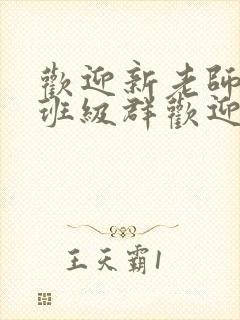 歡迎新老師
班級群歡迎
王天霸1